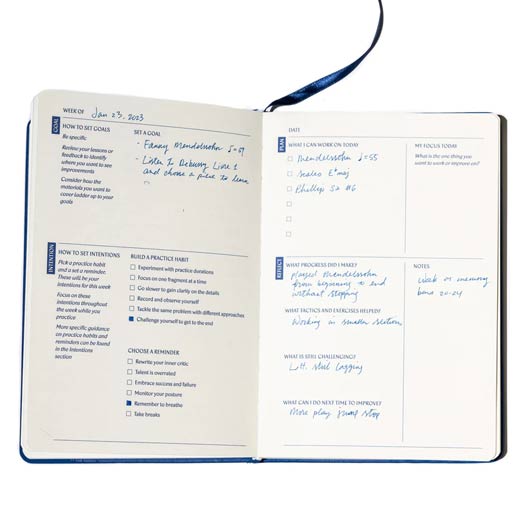 WEEK OF Jan 23, 2023
GOAL
HOW TO SET GOALS
Be specific
Review your lessons or
feedback to identify
where you want to see
improvements
Consider how the
materials you want to
cover ladder up to your
goals
SET A GOAL
- Fanny Mendelssohn ♩=69
- Listen to Debussy Livre 1
and choose a piece to learn
INTENTION
HOW TO SET INTENTIONS
Pick a practice habit
and a set a reminder.
These will be your
intentions for this week
Focus on these
intentions throughout
the week while you
practice
More specific guidance
on practice habits and
reminders can be found
in the Intentions
section
BUILD A PRACTICE HABIT
Experiment with practice durations
Focus on one fragment at a time
Go slower to gain clarity on the details
Record and observe yourself
Tackle the same problem with different approaches
Challenge yourself to get to the end
CHOOSE A REMINDER
Rewrite your inner critic
Talent is overrated
Embrace success and failure
Monitor your posture
Remember to breathe
Take breaks
DATE
PLAN
WHAT I CAN WORK ON TODAY
Mendelssohn ♩=55
Scales E♭maj
Phillip #6
MY FOCUS TODAY
What is the one thing you
want to work or improve on?
REFLECT
WHAT PROGRESS DID I MAKE?
Played Mendelssohn
from beginning to end
without stopping
WHAT TACTICS AND EXERCISES HELPED?
Working in smaller sections
WHAT IS STILL CHALLENGING?
L.H. still lagging
WHAT CAN I DO NEXT TIME TO IMPROVE?
More play stop
NOTES
Work on memory
bars 20-24